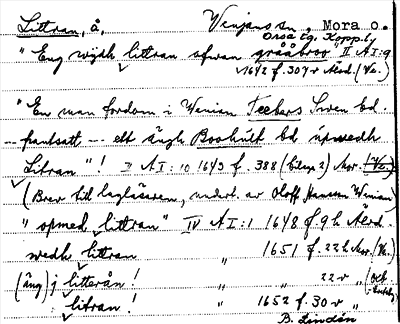 Littran, å, Venjans sn, Mora o.
Orsa tg. Kopp.ly
"Eng wydh littran ofwan grååbroo" II A I:9
1642 f. 307v Ålvd. (Ve.)
"En man fordom i Wenian Teebers Swen bd.
-- frantsatt -- ett ängh Boohult bd upwedh
Litran"! II A I:10 1643 f. 388 (bilaga 2) Mor. (Ve.)
(Brev till lagläsaren, undert. av Oloff Hansson Wenian)
"opmed littran" IV A I:1 1648 f. 9 h Älvd.
wedh littran " 1651 f. 22 h Mor. (Ve.)
(äng) j litterån! " " 22 v " (och
: litran! " 1652 f. 30 v "
B. Lindén